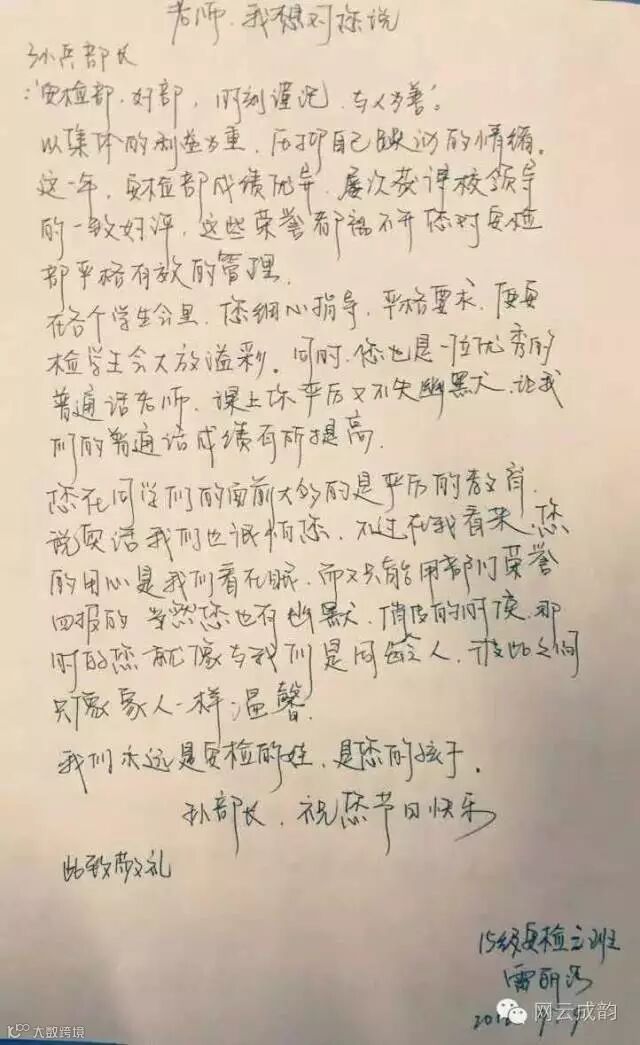 老师，我想对您说
孙兵部长
：“安检部，好部，时刻谨记，与人为善”。
以集体的利益为重，压抑自己的情绪。
这一年，安检部成绩优异，屡次获得校领导
的一致好评，这些荣誉都离不开您对安检
部严格有效的管理。
在各个学生会里，您细心指导，严格要求，使安
检学生会大放溢彩。同时，您也是一位优秀的
普通话老师，课上你严厉又不失幽默，让我
们的普通话成绩有所提高。
您在同学们的面前大多的是严厉的教育，
说实话我们也很怕您，不过在我看来，您
的用心是我们看在眼，而又只能用部门荣誉
回报的 当然您也有幽默，俏皮的时候，那
时的您就像与我们是同龄人，彼此之间
只像家人一样温馨。
我们永远是安检的娃，是您的孩子。
孙部长，祝您节日快乐
此致敬礼
15级安检三班
雷丽
网云成韵
大数跨境